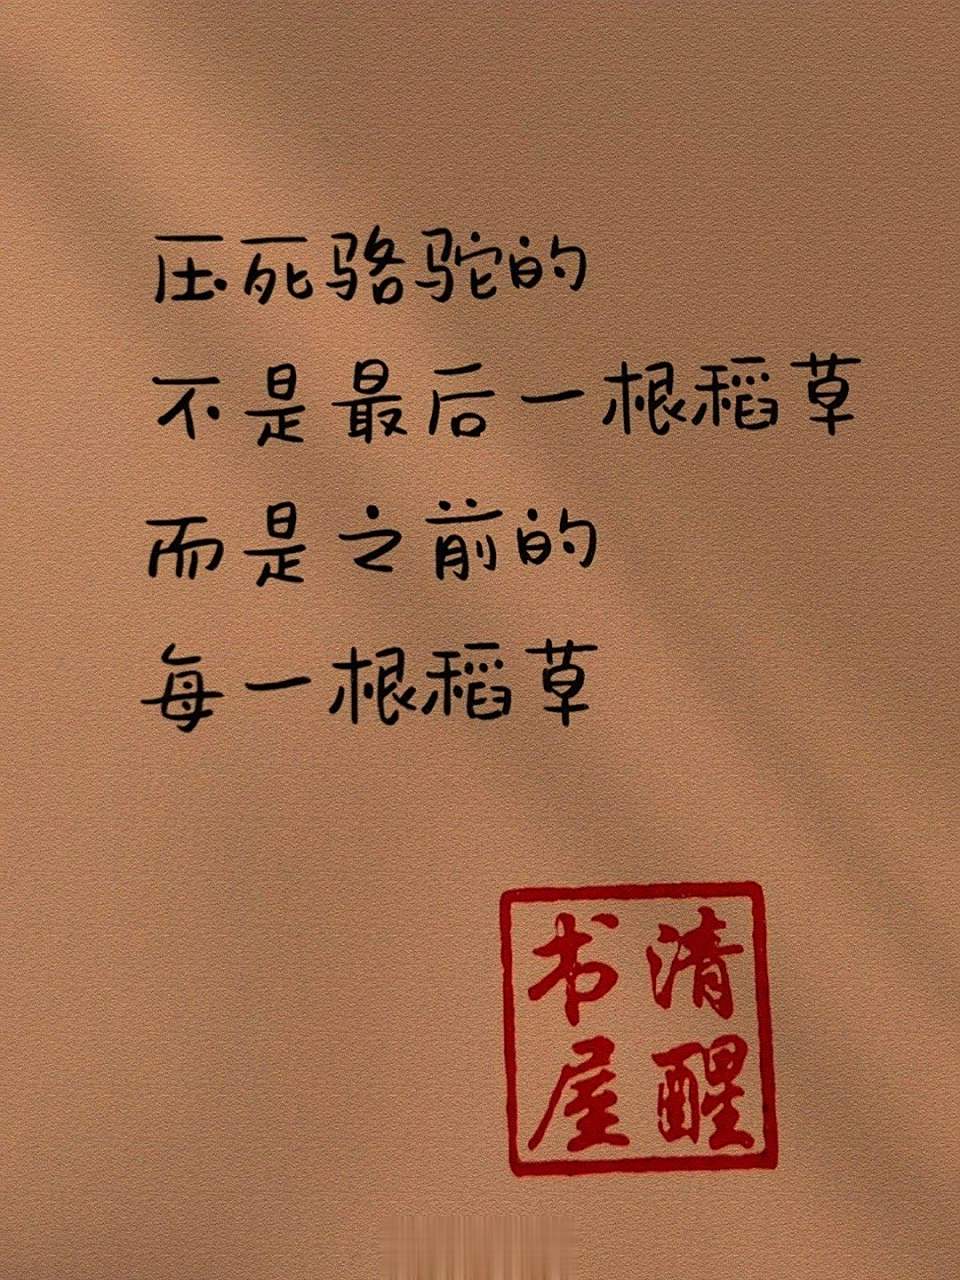 压死骆驼的
不是最后一根稻草
而是之前的
每一根稻草
清醒
书屋